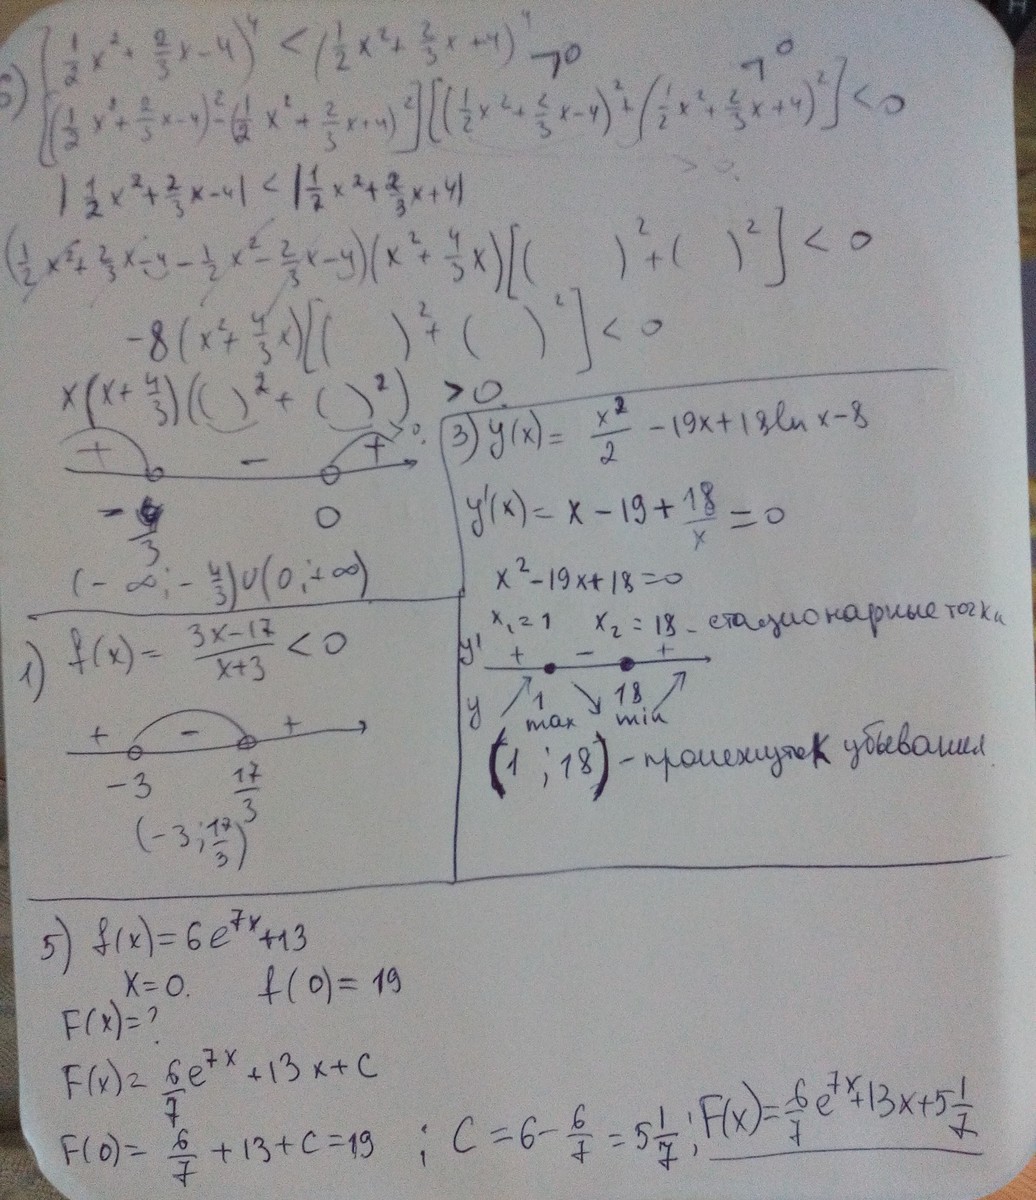 6) [(1/2 x² + 2/3 x - 4)⁴ < (1/2 x² + 2/3 x + 4)⁴
>0 >0
[(1/2 x² + 2/3 x - 4)² - (1/2 x² + 2/3 x + 4)²][(1/2 x² + 2/3 x - 4)² + (1/2 x² + 2/3 x + 4)²] < 0
> 0.
|1/2 x² + 2/3 x - 4| < |1/2 x² + 2/3 x + 4|
(1/2 x² + 2/3 x - 4 - 1/2 x² - 2/3 x - 4)(x² + 4/3 x)[( )² + ( )²] < 0
-8(x² + 4/3 x)[( )² + ( )²] < 0
x(x + 4/3)(( )² + ( )²) > 0.
>0.
+ - +
-4/3 0
(-∞; -4/3)∪(0; +∞)
1) f(x) = (3x-17)/(x+3) < 0
+ - +
-3 17/3
(-3; 17/3)
3) y(x) = x²/2 - 19x + 18 ln x - 8
y'(x) = x - 19 + 18/x = 0
x² - 19x + 18 = 0
x₁ = 1 x₂ = 18 - стационарные точки
y' + - +
y 1 18
max min
(1; 18) - промежуток убывания.
5) f(x) = 6e^7x + 13
x = 0. f(0) = 19
F(x) = ?
F(x) = 6/7 e^7x + 13x + C
F(0) = 6/7 + 13 + C = 19 ; C = 6 - 6/7 = 5 1/7; F(x) = 6/7 e^7x + 13x + 5 1/7